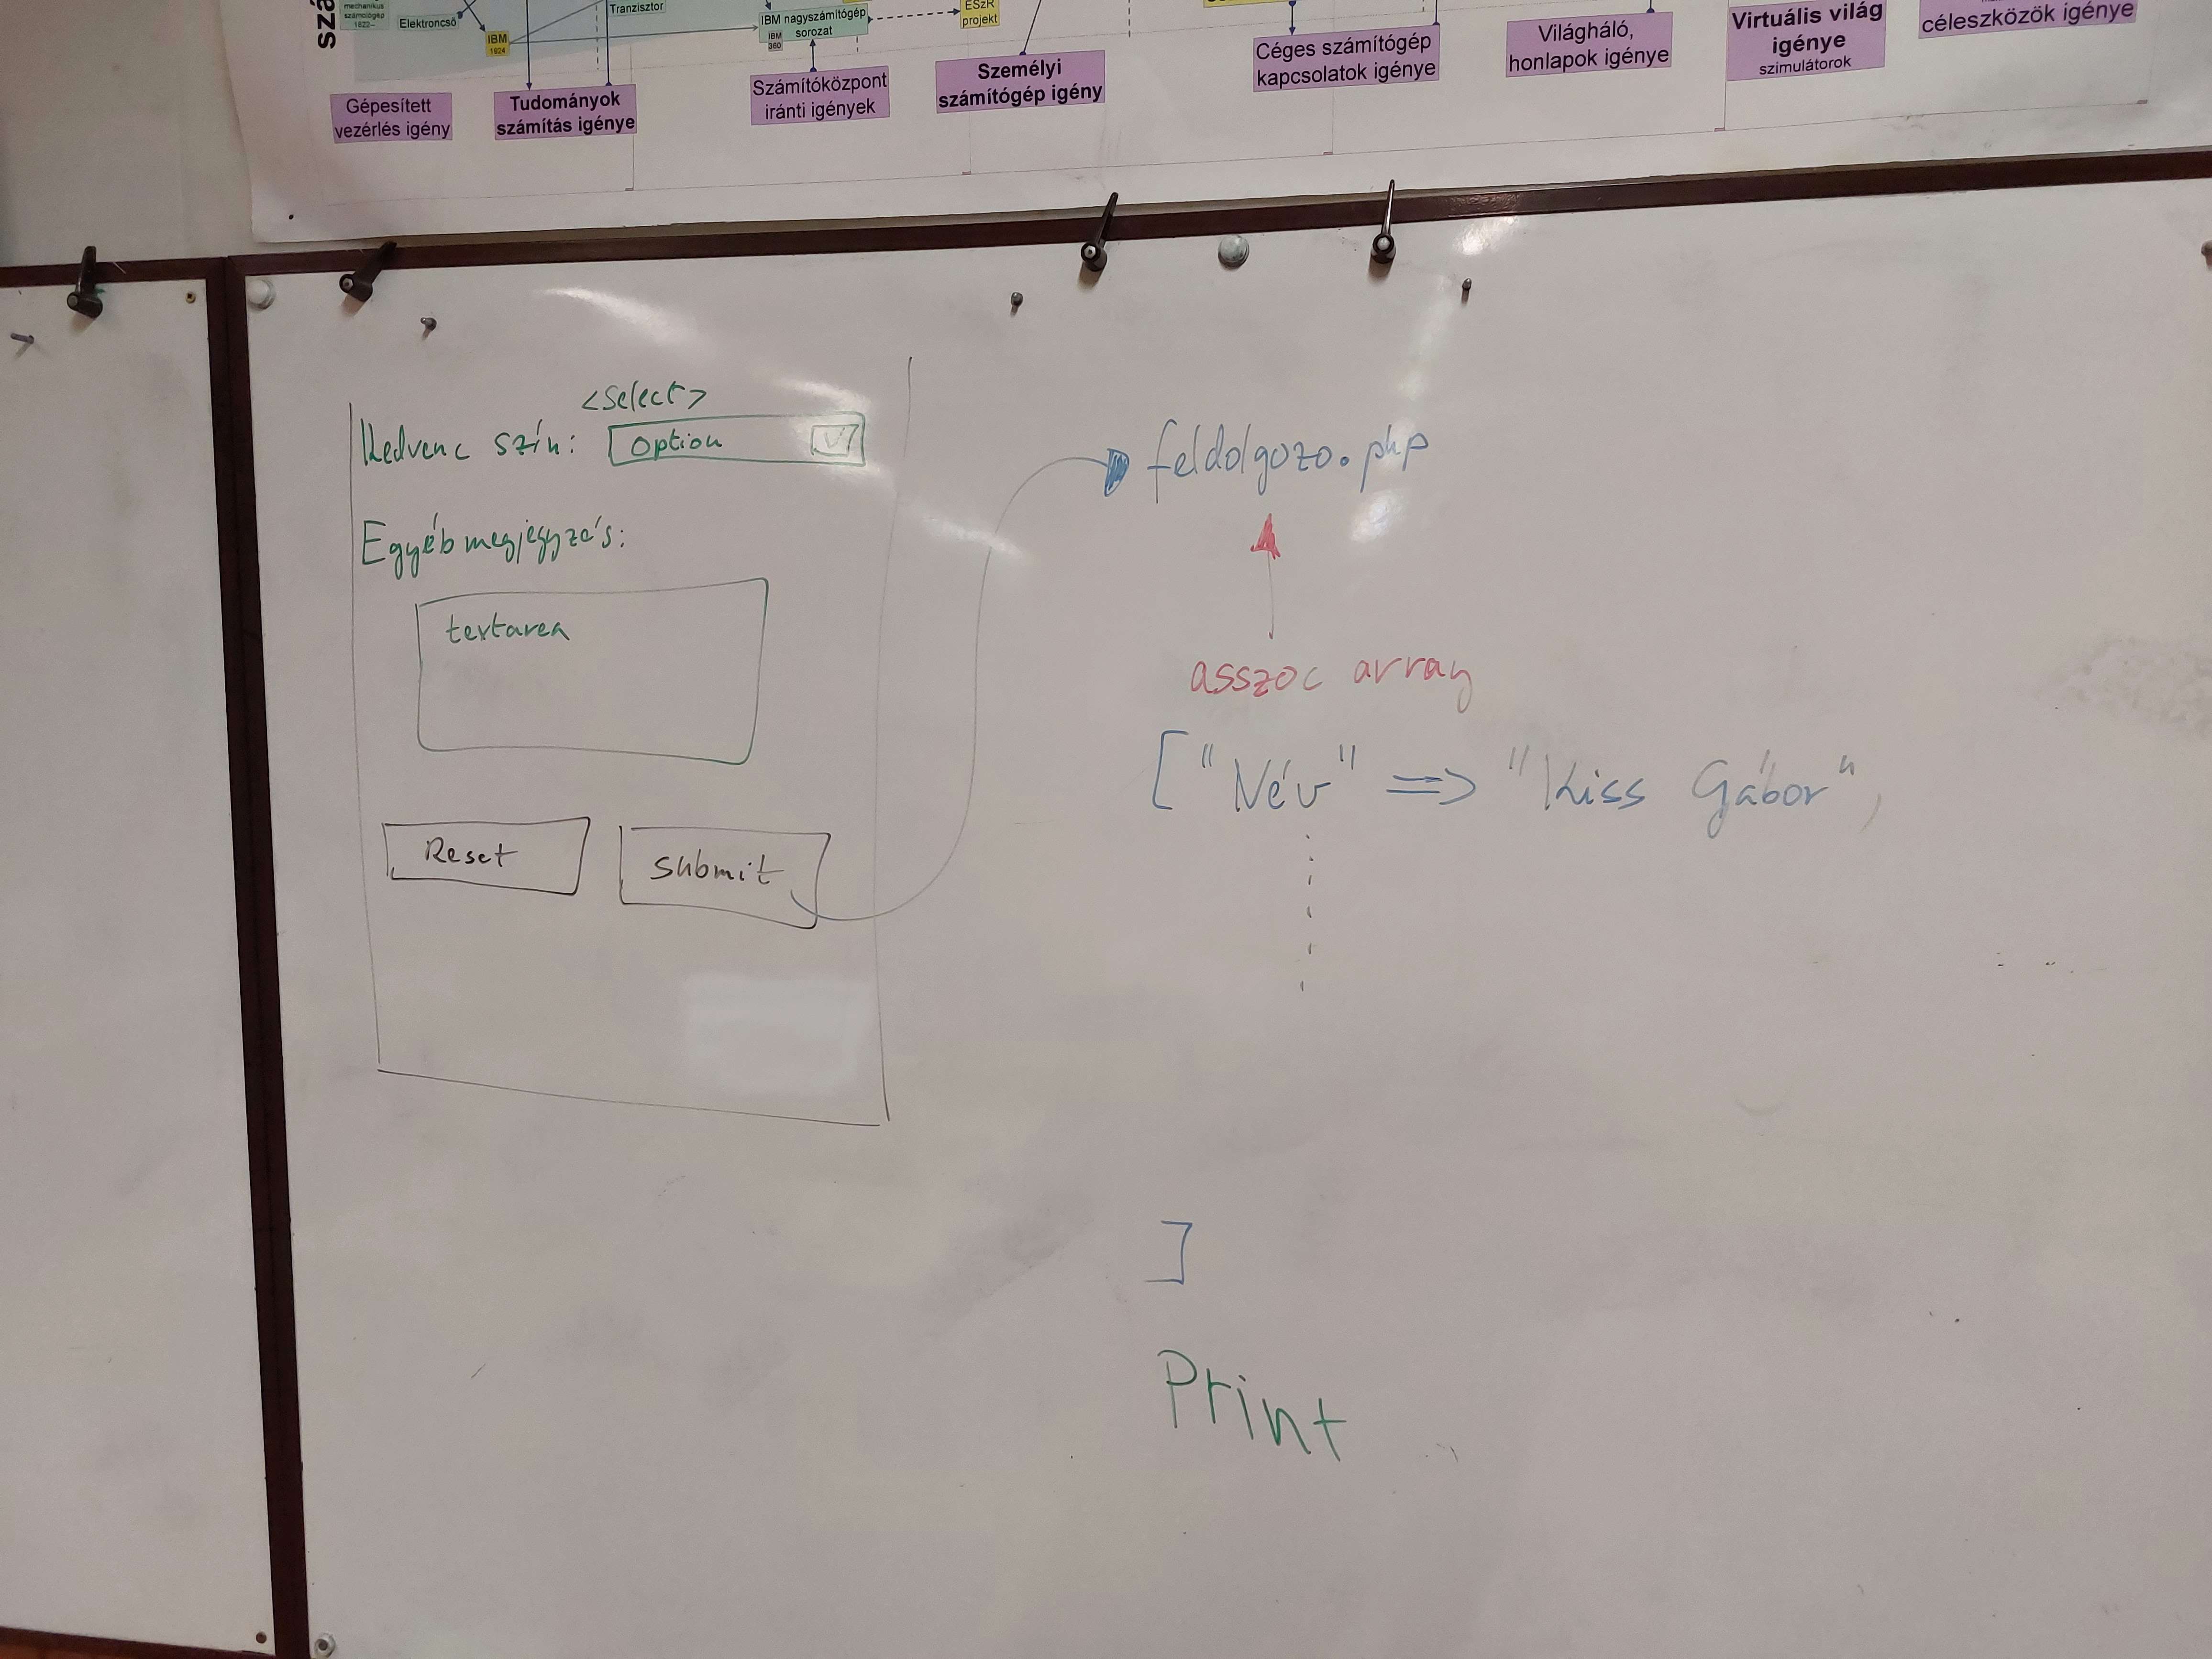 szá
mechanikus
számológép
1822–
Elektroncső
IBM
1924
Tranzisztor
IBM nagyszámítógép
sorozat
IBM
360
ESzR
projekt
Gépesített
vezérlés igény
Tudományok
számítás igénye
Számítóközpont
iránti igények
Személyi
számítógép igény
Céges számítógép
kapcsolatok igénye
Világháló,
honlapok igénye
Virtuális világ
igénye
szimulátorok
céleszközök igénye
<select>
Kedvenc szín: option
Egyéb megjegyzés:
textarea
Reset
Submit
feldolgozo.php
asszoc array
["Név" => "Kiss Gábor",
]
Print